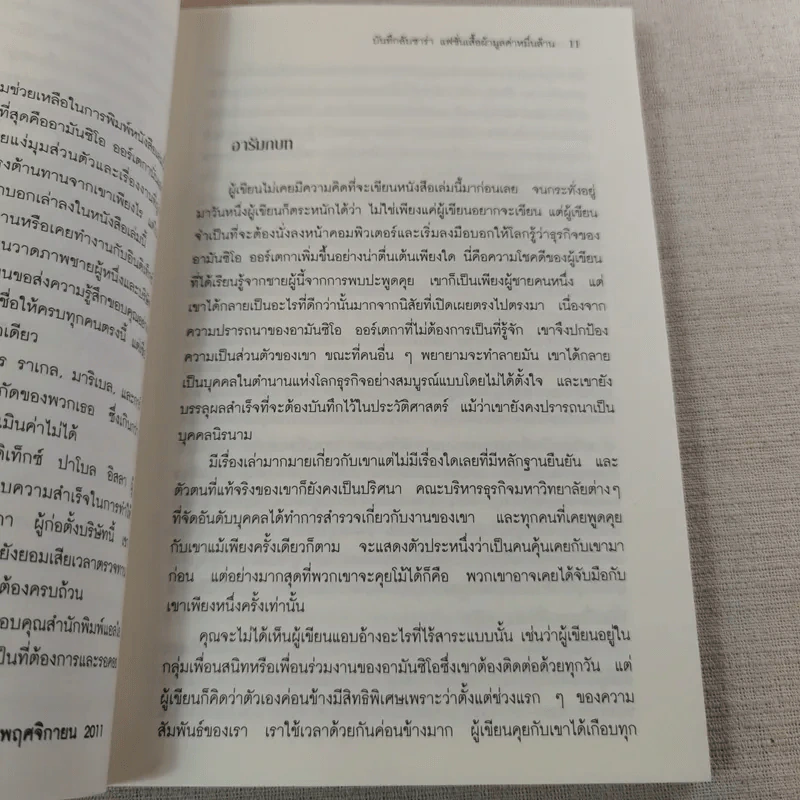 มช่วยเหลือในการพิมพ์หนังสือ
ที่สุดคืออามันซิโอ ออร์เตกา
ยแง่มุมส่วนตัวและเรื่องงาน
งต้านทานจากเขาเพียงไร
กบอกเล่าลงในหนังสือเล่มนี้
านหรือเคยทำงานกับอินดิเท็กซ์
นวาดภาพชายผู้หนึ่งและบริษัท
นขอส่งความรู้สึกขอบคุณ
ชื่อให้ครบทุกคนตรงนี้ แต่
อเดียว
ร ราเกล, มาริเบล, และ
กัดของพวกเธอ ซึ่งเกินกว่า
มินค่าไม่ได้
ดิเท็กซ์ ปาโบล อิสลา
บความสำเร็จในการทำให้
กา ผู้ก่อตั้งบริษัทนี้
ยังยอมเสียเวลาตรวจทาน
ต้องครบถ้วน
อบคุณสำนักพิมพ์
ป็นที่ต้องการและรอคอย
พฤศจิกายน 2011
บันทึกลับซาร่า แฟชั่นเสื้อผ้ามูลค่าหมื่นล้าน 11
อารัมภบท
ผู้เขียนไม่เคยมีความคิดที่จะเขียนหนังสือเล่มนี้มาก่อนเลย จนกระทั่งอยู่
มาวันหนึ่งผู้เขียนก็ตระหนักได้ว่า ไม่ใช่เพียงแค่ผู้เขียนอยากจะเขียน แต่ผู้เขียน
จำเป็นที่จะต้องนั่งลงหน้าคอมพิวเตอร์และเริ่มลงมือบอกให้โลกรู้ว่าธุรกิจของ
อามันซิโอ ออร์เตกาเพิ่มขึ้นอย่างน่าตื่นเต้นเพียงใด นี่คือความโชคดีของผู้เขียน
ที่ได้เรียนรู้จากชายผู้นี้จากการพบปะพูดคุย เขาก็เป็นเพียงผู้ชายคนหนึ่ง แต่
เขาได้กลายเป็นอะไรที่ดีกว่านั้นมากจากนิสัยที่เปิดเผยตรงไปตรงมา เนื่องจาก
ความปรารถนาของอามันซิโอ ออร์เตกาที่ไม่ต้องการเป็นที่รู้จัก เขาจึงปกป้อง
ความเป็นส่วนตัวของเขา ขณะที่คนอื่น ๆ พยายามจะทำลายมัน เขาได้กลาย
เป็นบุคคลในตำนานแห่งโลกธุรกิจอย่างสมบูรณ์แบบโดยไม่ได้ตั้งใจ และเขายัง
บรรลุผลสำเร็จที่จะต้องบันทึกไว้ในประวัติศาสตร์ แม้ว่าเขายังคงปรารถนาเป็น
บุคคลนิรนาม
มีเรื่องเล่ามากมายเกี่ยวกับเขาแต่ไม่มีเรื่องใดเลยที่มีหลักฐานยืนยัน และ
ตัวตนที่แท้จริงของเขาก็ยังคงเป็นปริศนา คณะบริหารธุรกิจมหาวิทยาลัยต่างๆ
ที่จัดอันดับบุคคลได้ทำการสำรวจเกี่ยวกับงานของเขา และทุกคนที่เคยพูดคุย
กับเขาแม้เพียงครั้งเดียวก็ตาม จะแสดงตัวประหนึ่งว่าเป็นคนคุ้นเคยกับเขามา
ก่อน แต่อย่างมากสุดที่พวกเขาจะคุยโม้ได้ก็คือ พวกเขาอาจเคยได้จับมือกับ
เขาเพียงหนึ่งครั้งเท่านั้น
คุณจะไม่ได้เห็นผู้เขียนแอบอ้างอะไรที่ไร้สาระแบบนั้น เช่นว่าผู้เขียนอยู่ใน
กลุ่มเพื่อนสนิทหรือเพื่อนร่วมงานของอามันซิโอซึ่งเขาต้องติดต่อด้วยทุกวัน แต่
ผู้เขียนก็คิดว่าตัวเองค่อนข้างมีสิทธิพิเศษเพราะว่าตั้งแต่ช่วงแรก ๆ ของความ
สัมพันธ์ของเรา เราใช้เวลาด้วยกันค่อนข้างมาก ผู้เขียนคุยกับเขาได้เกือบทุก